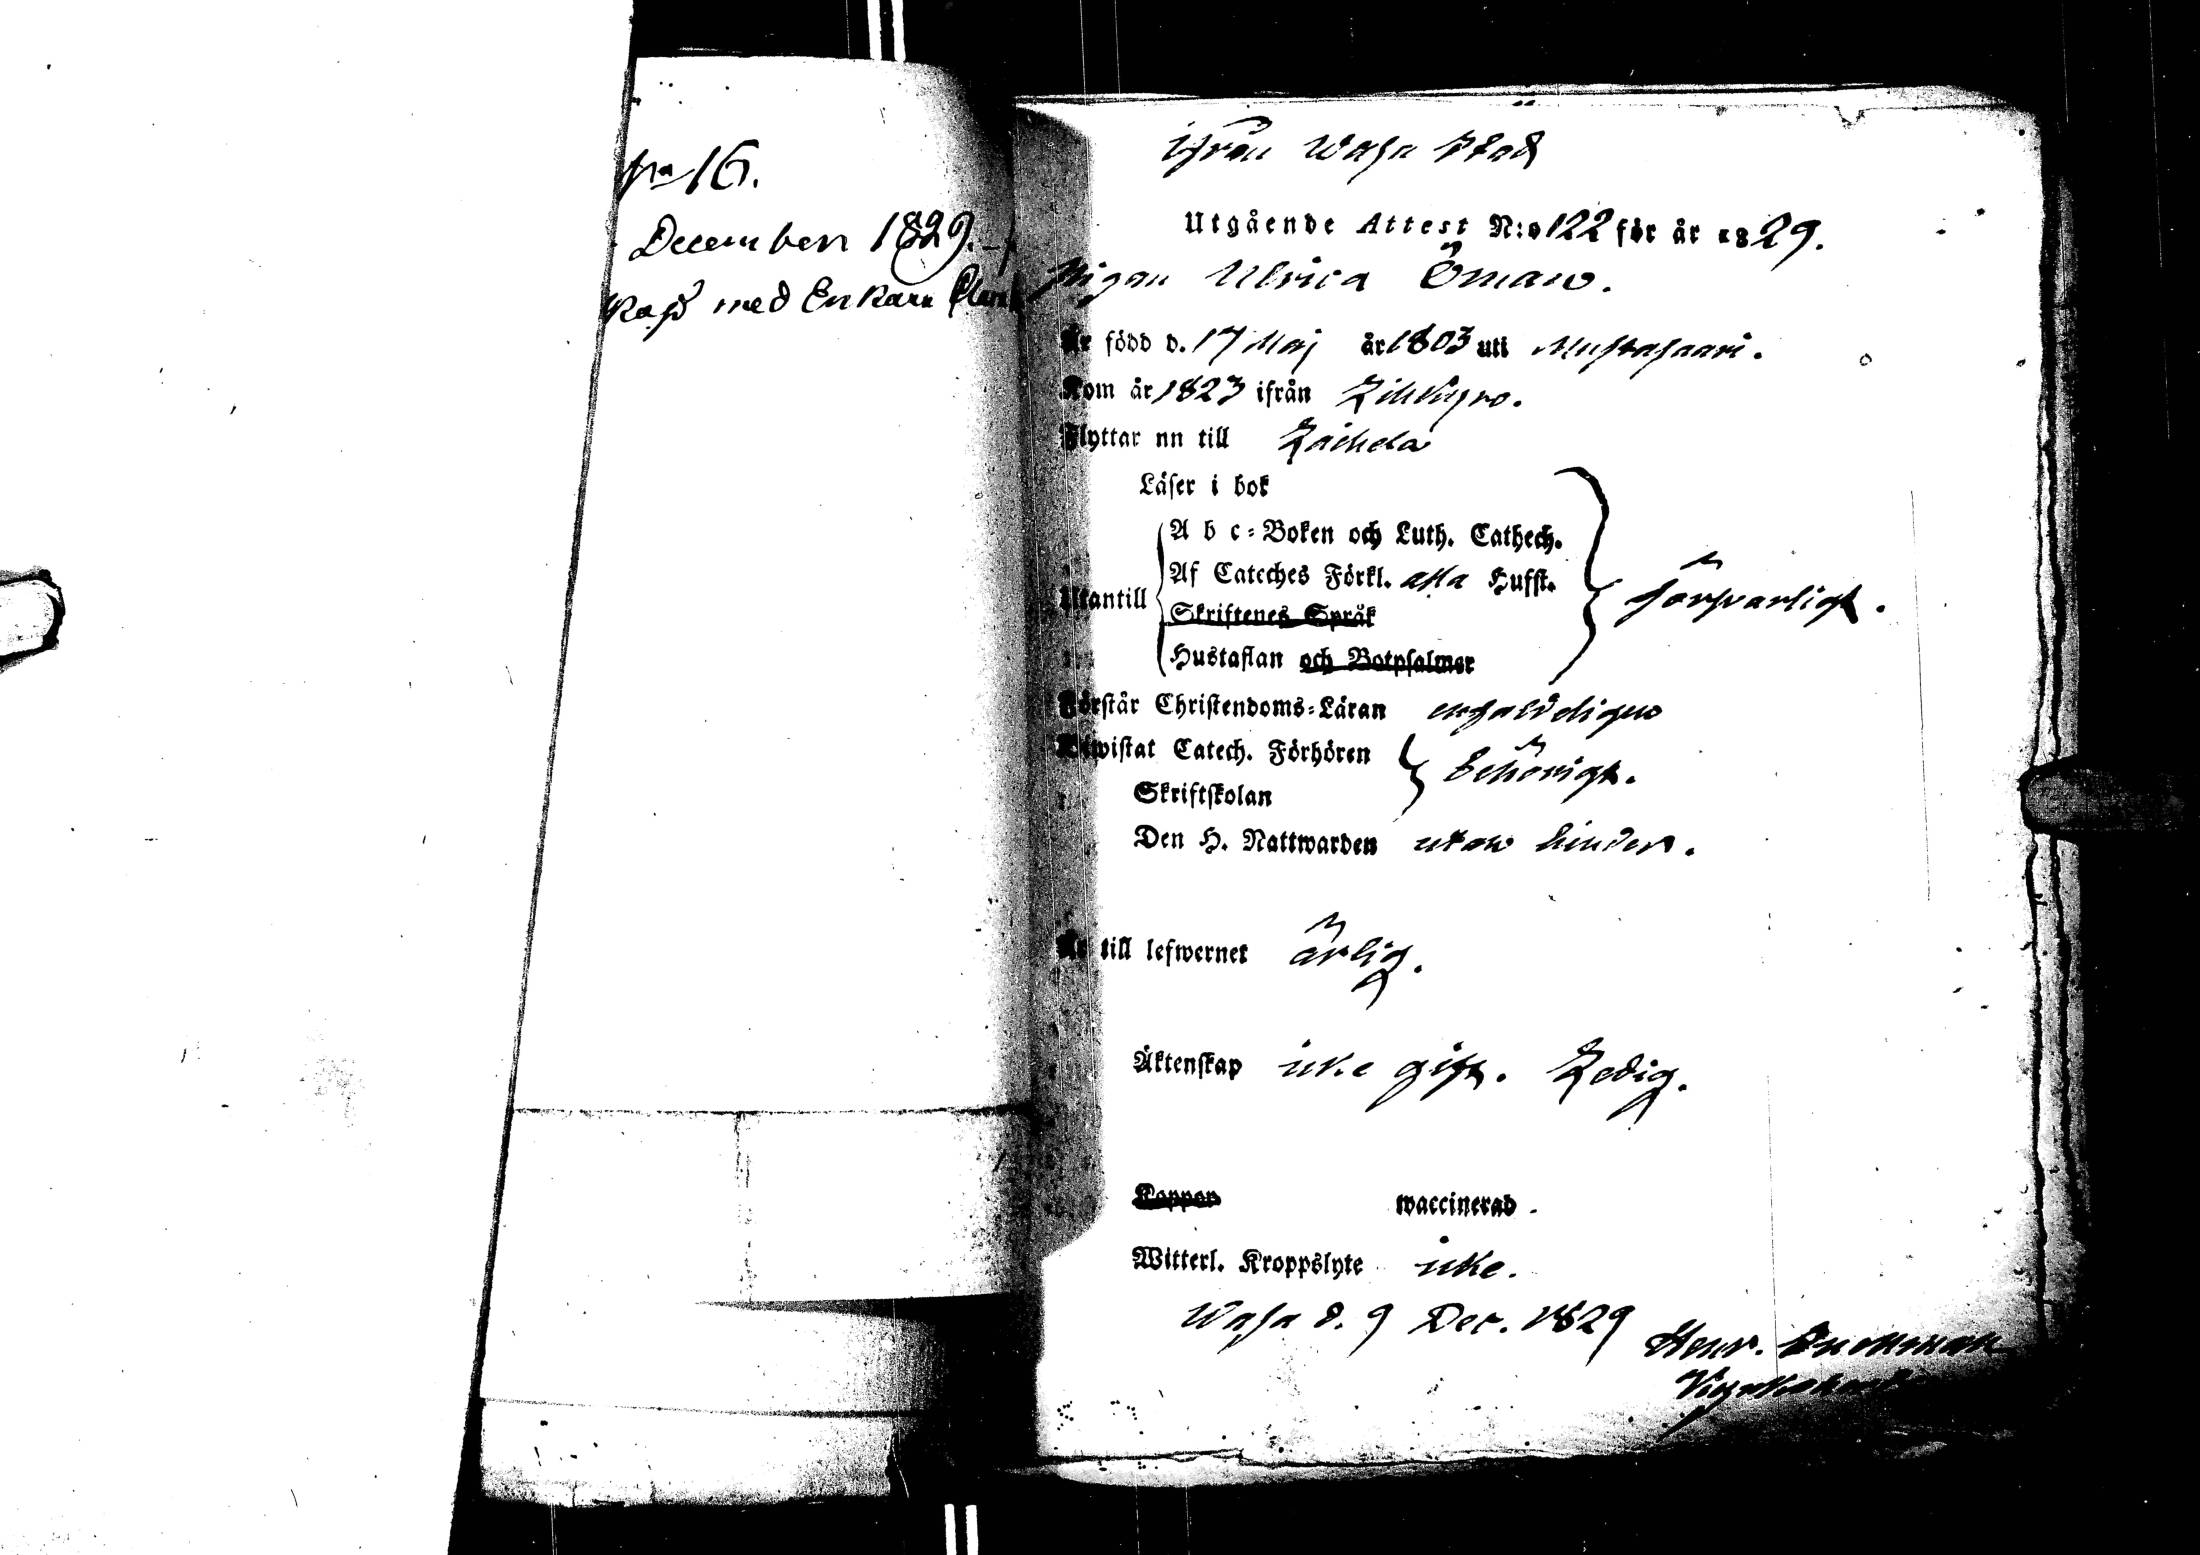 No 16.
December 1829.
skap med Enkan
ifrån Wasa Stad
Utgående Attest N:o 122 för år 1829.
Pigan Ulrica Öman.
Är född d. 17 Maj år 1803 uti Mustasaari.
Kom år 1823 ifrån Lillkyro.
Flyttar nn till Laihela
Läser i bok
A b c-Boken och Luth. Cathech.
Af Cateches Förkl. alla Hufst.
Utantill
Skriftenes Språk
försvarligt.
Hustaflan och Botpsalmer
Förstår Christendoms-Läran enfaldigen
Biwistat Catech. Förhören
behörigt.
Skriftskolan
Den H. Nattwarden utan hinder.
Är till lefwernet ärlig.
Äktenskap icke gift. Ledig.
Koppor waccinerad.
Witterl. Kroppslyte icke.
Wasa d. 9 Dec. 1829
Henr.